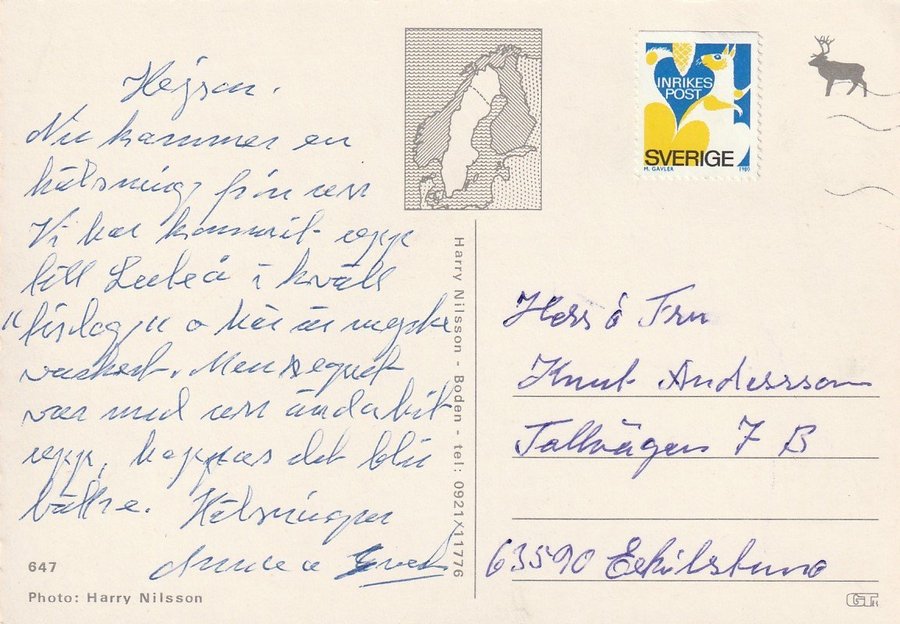 Hejsan.
Nu kommer en
hälsning från oss
Vi har kommit upp
till Luleå i kväll
o här är mycke
vackert. Men regnet
var med oss ända hit
upp, hoppas det blir
bättre. Hälsningar
647
Photo: Harry Nilsson
Harry Nilsson - Boden - tel: 0921X11776
INRIKES
POST
SVERIGE
M. GAVLER 1980
Herr o Fru
Knut Andersson
Tallvägen 7 B
63590 Eskilstuna
GT